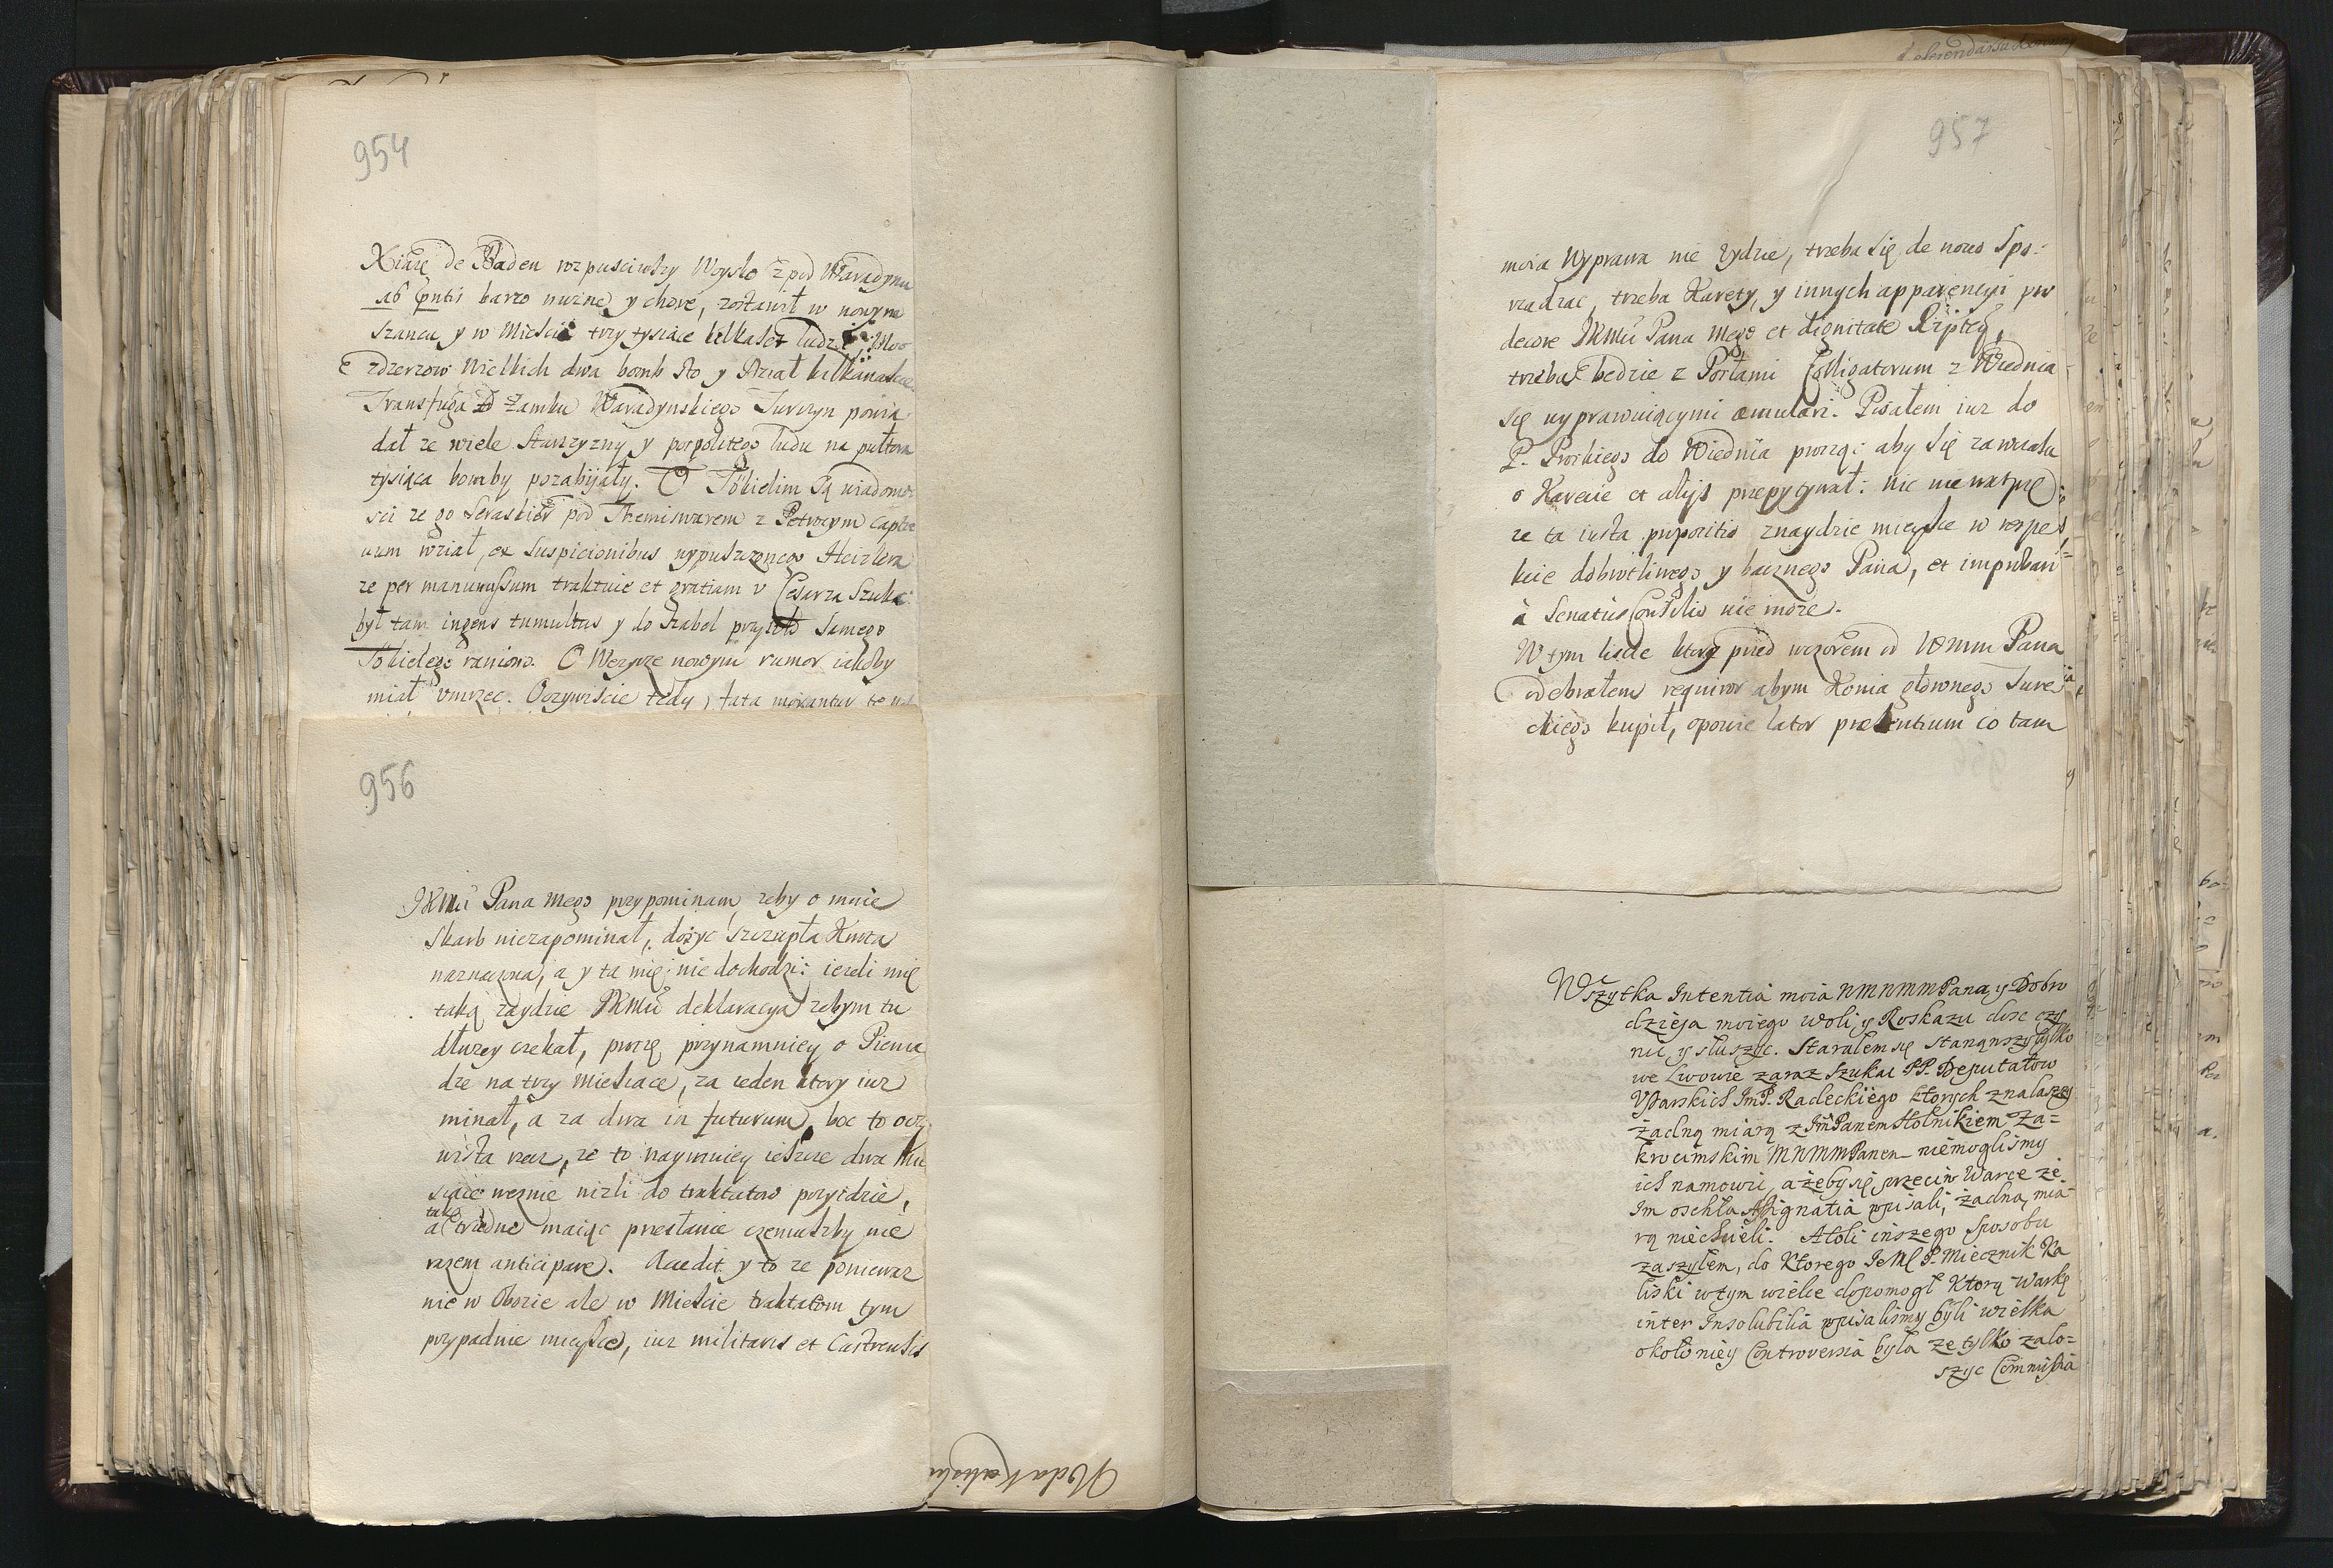 954
Xiążę de Baden rozpusciwszy Woysko z pod Waradynu
barzo nużne y chore, zostawił w nowym
szancu y w Miescie trzy tysiące kilkaset ludzi
Wielkich dwa bomb sto y Dział kilkanascie
Transfuga Zamku Waradynskiego Turczyn powia
dał ze wiele Starszyzny y pospolitego ludu na pułtora
tysiąca bomby pozabijały. O Tökielim są wiadomo
sci ze go Seraskier pod Themiswarem z Petrocym capti
uum wział, ex suspicionibus wypuszczonego Heizlera
ze per manumissum traktuie et gratiam v Cesarza Szuka:
był tam ingens tumultus y do szabel przyszło Samego
Tökielego raniono. O Wezyrze nowym rumor iakoby
miał vmrzec. Oczywiscie tedy, fata morantur
956
JKMci Pana mego przypominam, zeby o mnie
Skarb niezapominał, dosyc szczupła Kwota
naznaczona, a y ta mię nie dochodzi: iezeli mię
taką zaydzie JKMci deklaracya zebym tu
dłuzey czekał, proszę przynamniey o Pienia
dze na trzy Miesiace, za ieden ktory iuz
minał, a za dwa in futurum, boc to oczy
wista rzecz, ze to naymniey ieszcze dwa Mie
siące wezmie nizli do traktatow przyidzie,
tak
a trudne maiąc przesłanie czemuszby nie
razem anticipare. Accedit y to ze poniewaz
nie w Obozie ale w Miescie traktatom tym
przypadnie mieysce, iuz militaris et Castrensis
957
moia Wyprawa nie zydzie, trzeba się de nowo spo-
rzadzac, trzeba Karety, y innych apparencyi pro
decore JKMci Pana Mego et dignitate Rzpltey,
trzeba będzie z Posłami Colligatorum z Wiednia
się wyprawuiącymi æmulari. Pisałem iuz do
P. Proskiego do Wiednia prosząc aby się zawczasu
o Karecie et alijs przepytywał: nic nie watpię
ze ta iusta propositio znaydzie mieysce w respe
kcie dobrotliwego y bacznego Pana, et improbari
à Senatus Consilio nie moze.
W tym liscie ktory przed wczorem od WMM Pana
odebrałem requiror abym Konia głownego Ture
ckiego kupił, opowie lator præsentium co tam
Wszytka Intentia moia WMMMPana y Dobro
dzieja moiego woli y Roskazu dosc czy
nic y słuszyc. Starałem się stanąwszy tylko
we Lwowie zaraz szukac PP. Deputatow
JmP. Radeckiego ktorych znalaszszy
żadną miarą z JmPanem Stolnikiem Za-
kroczimskim MMMPanem niemoglismy
ich namowic, ażeby się przeciw Warce ze
Im oschła Assignatia wpisali, żadną mia-
rą niechcieli. Atoli inszego sposobu
zaszyłem, do ktorego JeMć P. Miecznik Ka
liski wtym wielce dopomogł Ktorą Warkę
inter Insolubilia wpisalismy byli wielka
około niey Controversia była ze tylko zalo-
szyc Commissia